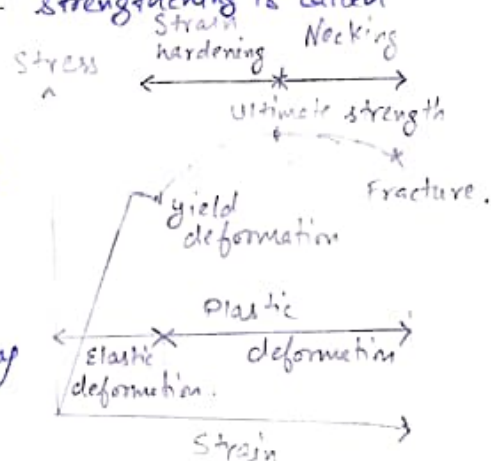 strengthening is called
Strain hardening
Necking
Stress
Ultimate strength
Fracture.
yield deformation
Plastic deformation
Elastic deformation.
Strain